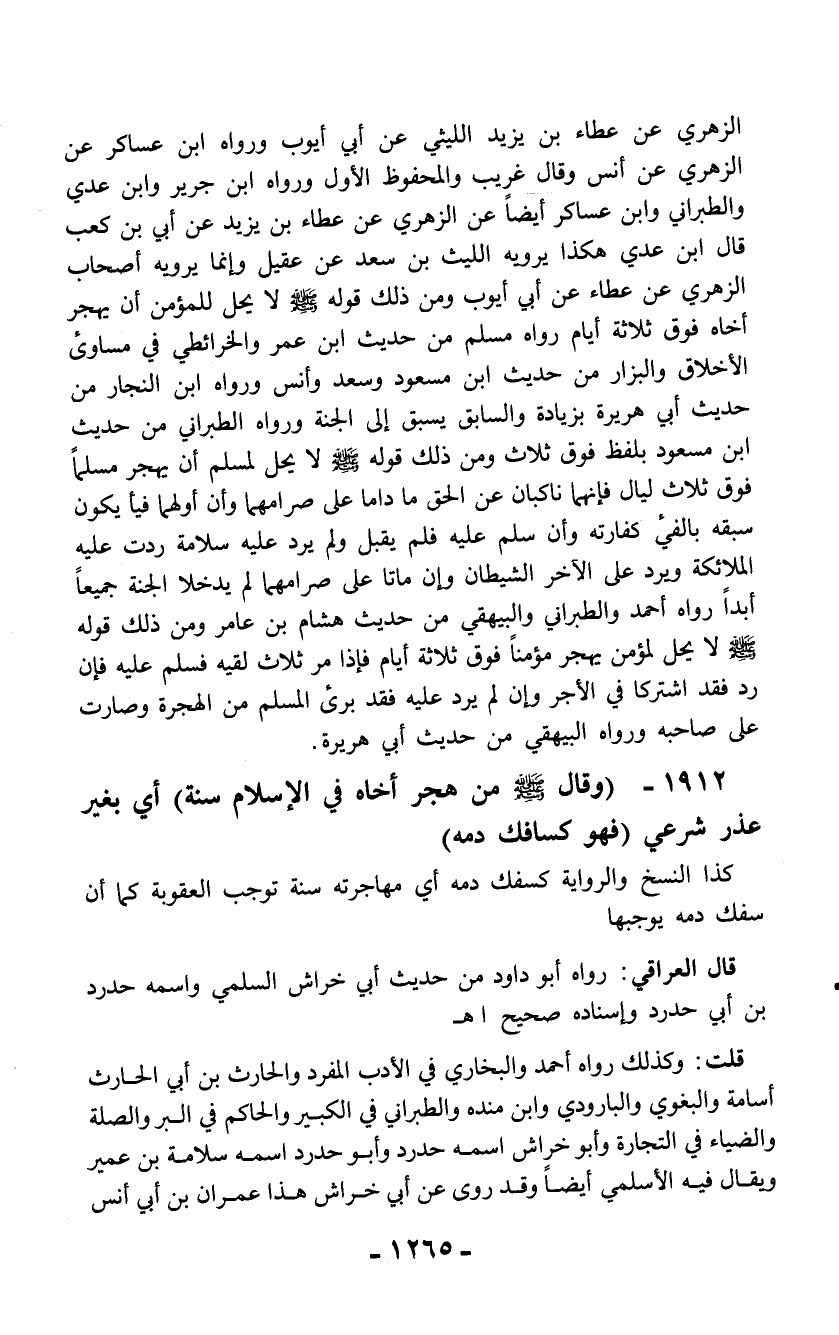 الزهري عن عطاء بن يزيد الليثي عن أبي أيوب ورواه ابن عساكر عن
الزهري عن أنس وقال غريب والمحفوظ الأول ورواه ابن جرير وابن عدي
والطبراني وابن عساكر أيضاً عن الزهري عن عطاء بن يزيد عن أبي بن كعب
قال ابن عدي هكذا يرويه الليث بن سعد عن عقيل وإنما يرويه أصحاب
الزهري عن عطاء عن أبي أيوب ومن ذلك قوله ﷺ لا يحل للمؤمن أن يهجر
أخاه فوق ثلاثة أيام رواه مسلم من حديث ابن عمر والخرائطي في مساوئ
الأخلاق والبزار من حديث ابن مسعود وسعد وأنس ورواه ابن النجار من
حديث أبي هريرة بزيادة والسابق يسبق إلى الجنة ورواه الطبراني من حديث
ابن مسعود بلفظ فوق ثلاث ومن ذلك قوله ﷺ لا يحل لمسلم أن يهجر مسلماً
فوق ثلاث ليال فإنهما ناكبان عن الحق ما داما على صرامهما وأن أولهما فيأ يكون
سبقه بالفئ كفارته وأن سلم عليه فلم يقبل ولم يرد عليه سلامة ردت عليه
الملائكة ويرد على الآخر الشيطان وإن ماتا على صرامهما لم يدخلا الجنة جميعاً
أبداً رواه أحمد والطبراني والبيهقي من حديث هشام بن عامر ومن ذلك قوله
ﷺ لا يحل لمؤمن يهجر مؤمناً فوق ثلاثة أيام فإذا مر ثلاث لقيه فسلم عليه فإن
رد فقد اشتركا في الأجر وإن لم يرد عليه فقد برئ المسلم من الهجرة وصارت
على صاحبه ورواه البيهقي من حديث أبي هريرة.
١٩١٢ - (وقال ﷺ من هجر أخاه في الإسلام سنة) أي بغير
عذر شرعي (فهو كسافك دمه)
كذا النسخ والرواية كسفك دمه أي مهاجرته سنة توجب العقوبة كما أن
سفك دمه يوجبها
قال العراقي: رواه أبو داود من حديث أبي خراش السلمي واسمه حدرد
بن أبي حدرد وإسناده صحيح اهـ
قلت: وكذلك رواه أحمد والبخاري في الأدب المفرد والحارث بن أبي الحارث
أسامة والبغوي والبارودي وابن منده والطبراني في الكبير والحاكم في البر والصلة
والضياء في التجارة وأبو خراش اسمه حدرد وأبو حدرد اسمه سلامة بن عمير
ويقال فيه الأسلمي أيضاً وقد روى عن أبي خراش هذا عمران بن أبي أنس
- ١٢٦٥ -